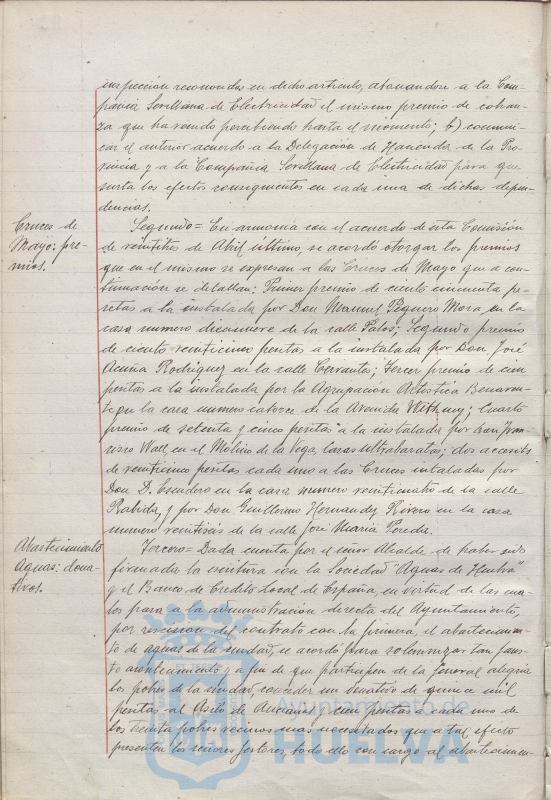 inspección reconocidas en dicho artículo, abonandose a la Com-
pañia Sevillana de Electricidad el mismo premio de cobran-
za que ha venido percibiendo hasta el momento; b) comuni-
car el anterior acuerdo a la Delegación de Hacienda de la Pro-
vincia y a la Compañia Sevillana de Electricidad para que
surta los efectos consiguientes en cada una de dichas depen-
dencias.
Cruces de
Mayo: pre-
mios.
Segundo = En armonia con el acuerdo de esta Comisión
de veintitres de Abril último, se acordó otorgar los premios
que en el mismo se expresan a las Cruces de Mayo que a con-
tinuación se detallan: Primer premio de ciento cincuenta pe-
setas a la instalada por Don Manuel Peguero Mora en la
casa numero diecinueve de la calle Palos; Segundo premio
de ciento veinticinco pesetas a la instalada por Don José
Acuña Rodriguez en la calle Cervantes; Tercer premio de cien
pesetas a la instalada por la Agrupación Artistica Benaven-
te en la casa numero catorce de la Avenida Withney; Cuarto
premio de setenta y cinco pesetas a la instalada por Don Fran-
cisco Wall en el Molino de la Vega, Casas Ultrabaratas; dos accesits
de veinticinco pesetas cada uno a las Cruces intaladas por
Don D. Escudero en la casa numero veinticuatro de la calle
Rabida, y por Don Guillermo Hernandez Rivero en la casa
numero veintiséis de la calle José Maria Pereda.
Abastecimiento
Aguas: dona-
tivos.
Tercero = Dada cuenta por el señor Alcalde de haber sido
firmada la escritura con la Sociedad "Aguas de Huelva"
y el Banco de Credito Local de España, en virtud de las cua-
les pasa a la administración directa del Ayuntamiento,
por rescision del contrato con la primera, el abastecimien-
to de aguas de la ciudad, se acordó para solemnizar tan faus-
to acontecimiento y a fin de que participen de la general alegria
los pobres de la ciudad, conceder un donativo de quince mil
pesetas al Asilo de Ancianos y cien pesetas a cada uno de
los treinta pobres vecinos mas necesitados que a tal efecto
presenten los señores gestores, todo ello con cargo al abastecimien-
Ayuntamiento de
HUELVA